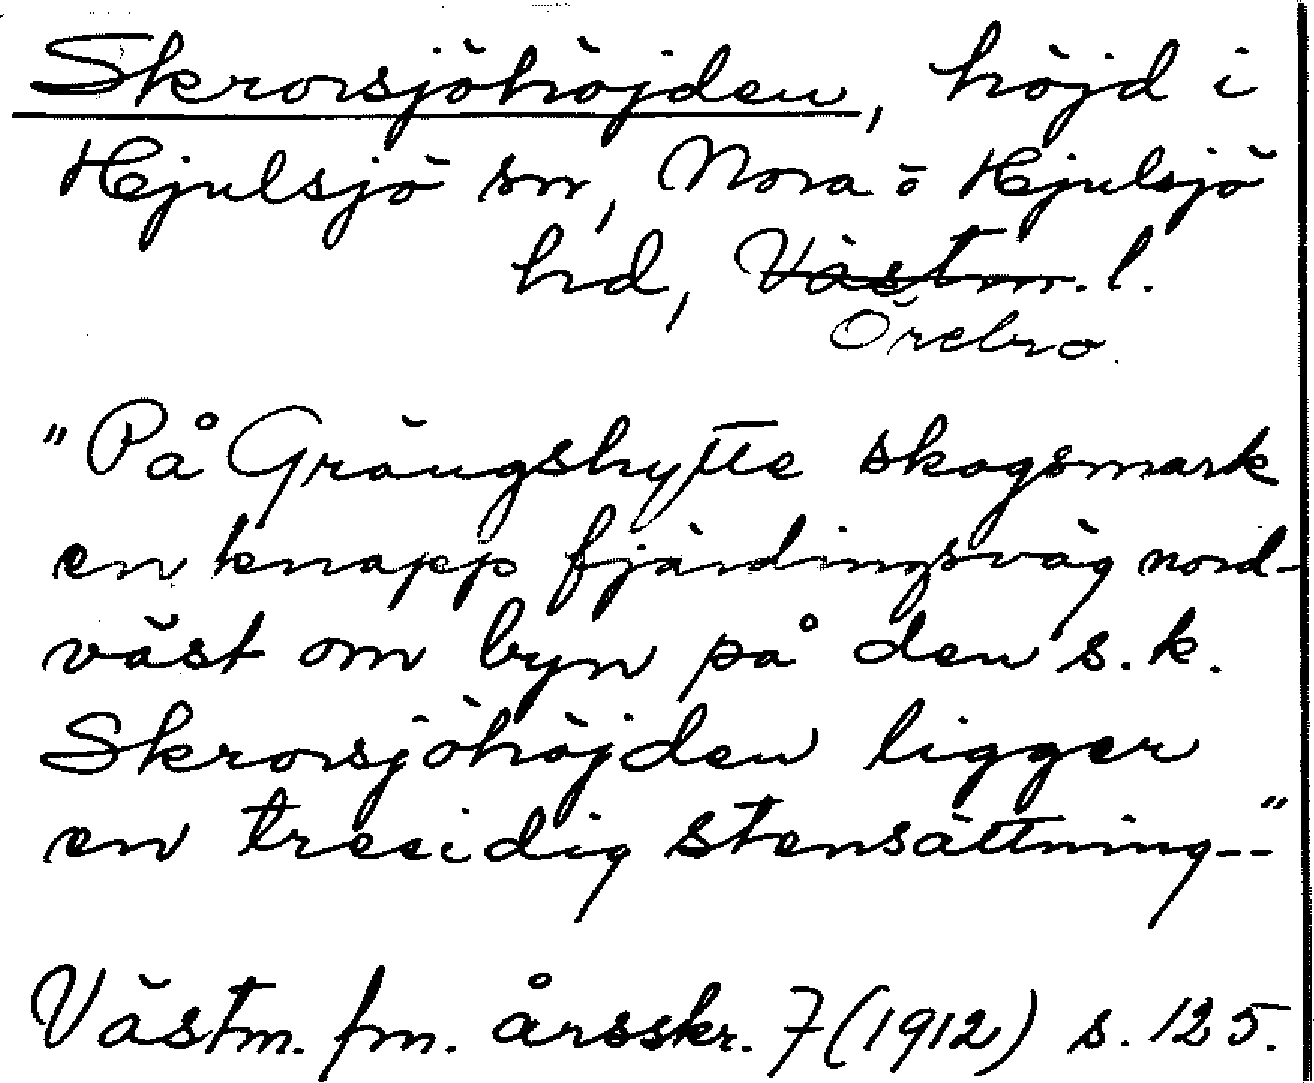 Skrovsjöhöjden, höjd i
Hjulsjö sn, Nora o Hjulsjö
hd, Västm. l.
Örebro
"På Grängshytte skogsmark
en knapp fjärdingsväg nord-
väst om byn på den s.k.
Skrovsjöhöjden ligger
en tresidig stensättning--"
Västm. fm. årsskr. 7 (1912) s. 125.